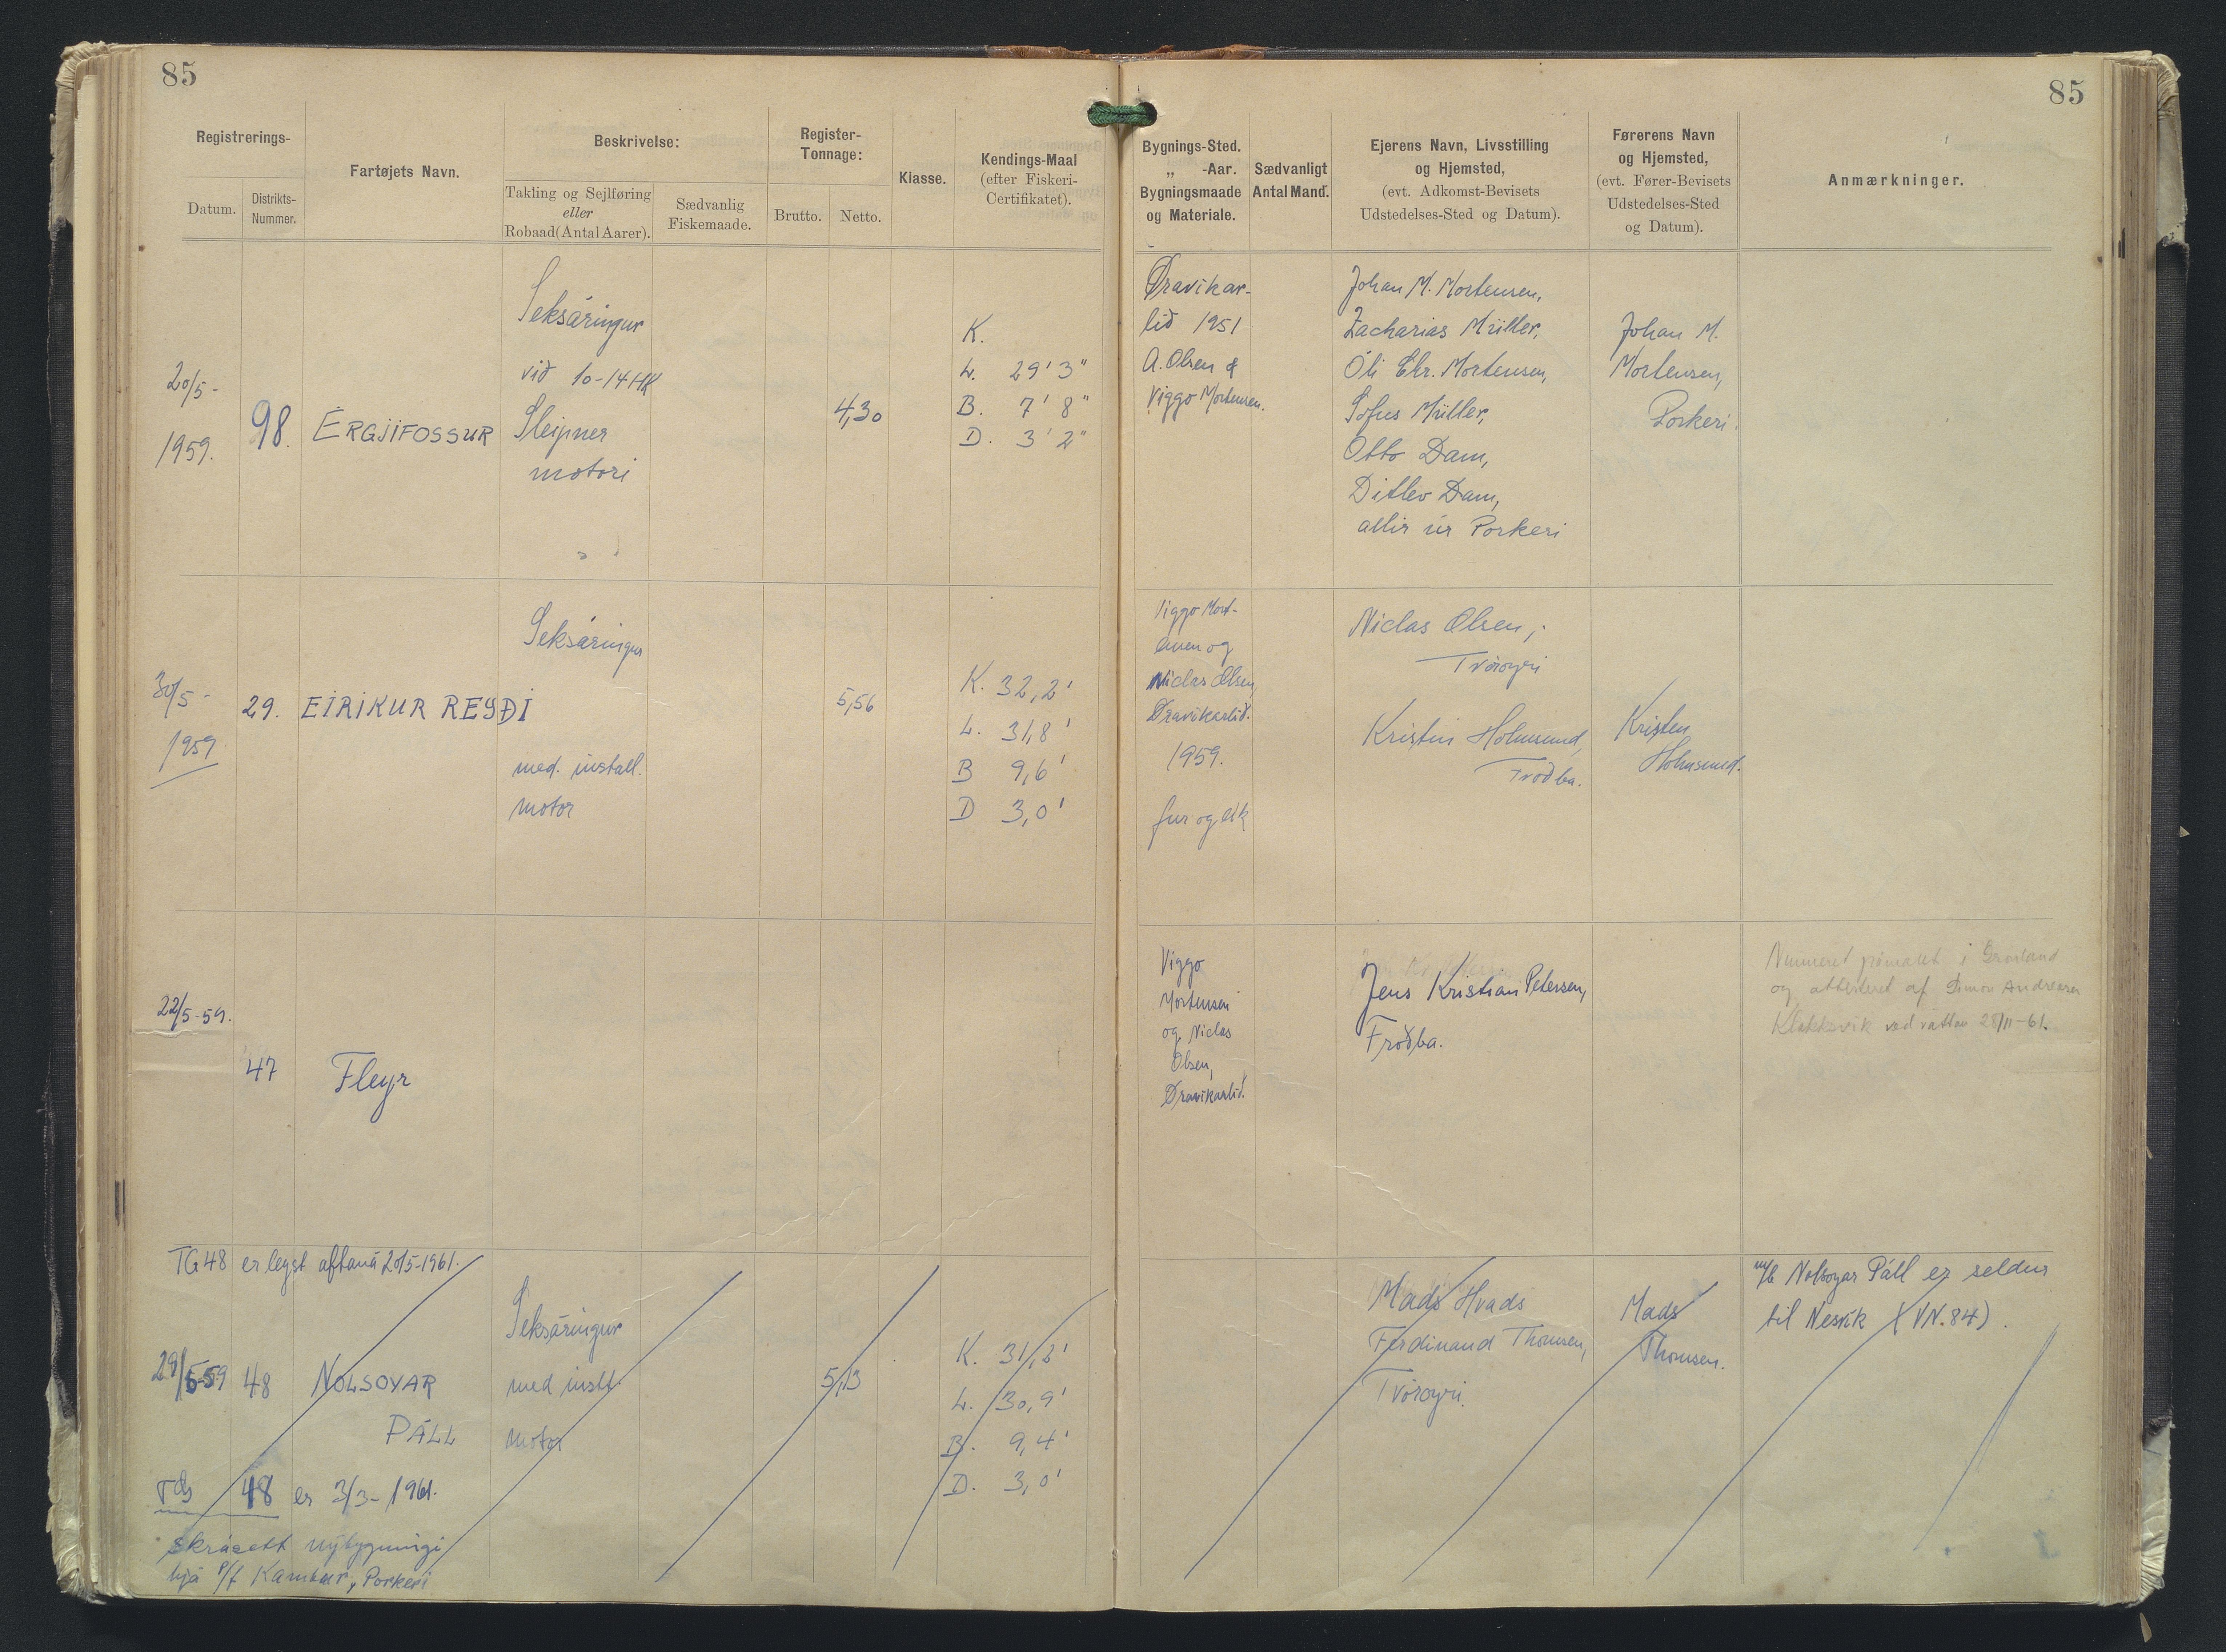 85
85
Registrerings-
Datum.
Distrikts-
Nummer.
Fartøjets Navn.
Beskrivelse:
Takling og Sejlføring
eller
Robaad (Antal Aarer).
Sædvanlig
Fiskemaade.
Register-
Tonnage:
Brutto.
Netto.
Klasse.
Kendings-Maal
(efter Fiskeri-
Certifikatet).
Bygnings-Sted.
„ -Aar.
Bygningsmaade
og Materiale.
Sædvanligt
Antal Mand.
Ejerens Navn, Livsstilling
og Hjemsted,
(evt. Adkomst-Bevisets
Udstedelses-Sted og Datum).
Førerens Navn
og Hjemsted,
(evt. Fører-Bevisets
Udstedelses-Sted
og Datum).
Anmærkninger.
20/5-
1959.
98.
ERGJIFOSSUR
Seksáringur
við 10-14HK
Sleipner
motori
4,30
K.
L. 29' 3"
B. 7' 8"
D. 3' 2"
Øravíkar-
lið 1951
A. Olsen &
Viggo Mortensen.
Johan M. Mortensen,
Zacharias Müller,
Óli Chr. Mortensen,
Sofus Müller,
Otto Dam,
Ditlev Dam,
allir úr Porkeri
Johan M.
Mortensen,
Porkeri.
30/5-
1959
29.
EIRIKUR REYÐI
Seksáringur
med. install.
motor
5,56
K. 32,2'
L. 31,8'
B 9,6'
D 3,0'
Viggo Mort-
ensen og
Niclas Olsen,
Øravíkarlið.
1959.
fur og eik
Niclas Olsen,
Tvöroyri
Kristin Holmsund,
Froðba.
Kristen
Holmsund.
22/5-59.
47
Fleyr
Viggo
Mortensen
og Niclas
Olsen,
Øravíkarlið.
Jens Kristian Petersen,
Froðba.
Nummeret påmalet i Grønland
og attesteret af Simon Andreasen
Klakksvik ved 28/11-61.
TG 48 er legst aftaná 20/5-1961.
29/5-59
48
NOLSOYAR
PÁLL
Seksáringur
med instl.
motor
5,13
K. 31,2'
L. 30,9'
B. 9,4'
D. 3,0'
Mads Hvads
Ferdinand Thomsen,
Tvöroyri.
Mads
Thomsen.
m/b Nolsoyar Páll er seldur
til Nesvík (VN. 84).
TG 48 er 3/3-1961.
skrásett nýbygningi
hjá P/f Kambur, Porkeri